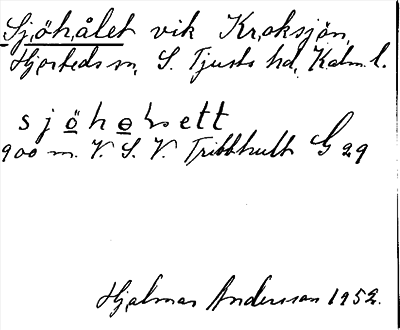 Sjöhålet vik Kroksjön,
Hjorteds sn, S. Tjusts hd, Kalm. l.
sjöhɵḷett
900 m. V. S. V. Tribbhult G 29
Hjalmar Andersson 1952.